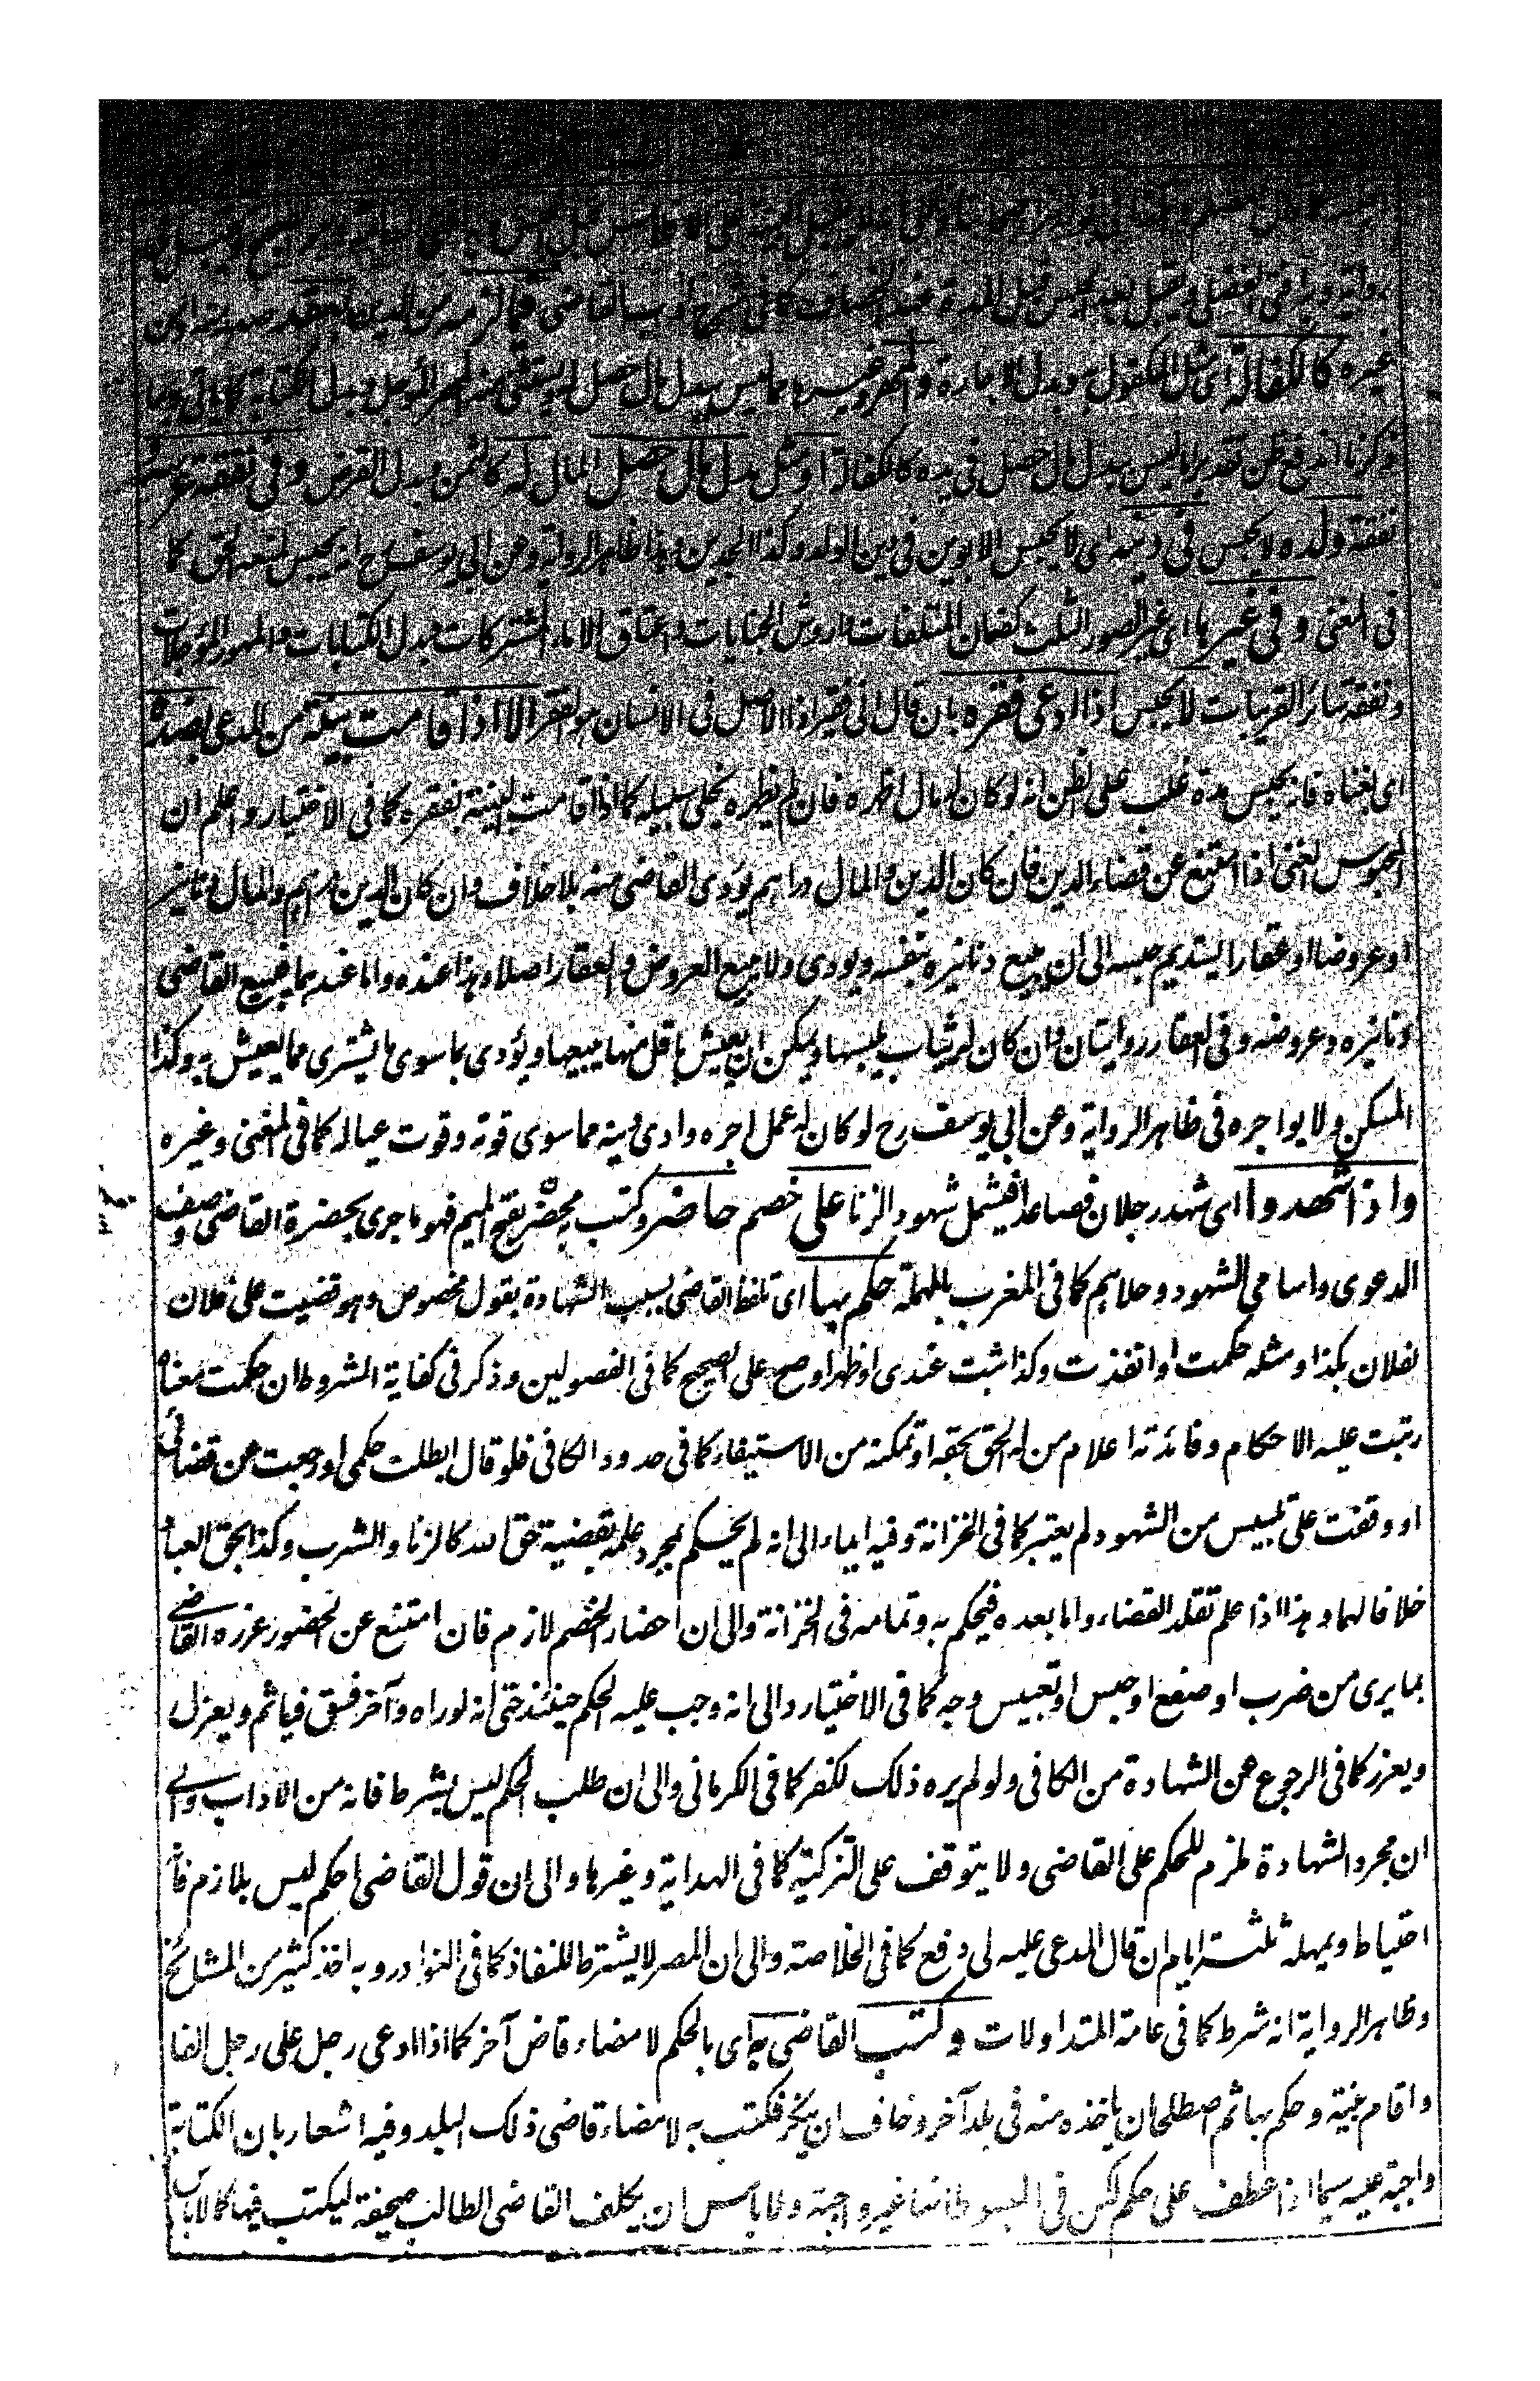 وآية وبه افتى الفضلي ويقبل بعد الحبس قبل المدة عند الخصاف كما في شرح ادب القاضي فيما لزمه من الدين بعقد
غيره كالكفالة اى مثل المكفول به وبدل الاجارة والمهر وغيره مما ليس ببدل مال حصل له
ذكرنا اندفع ظن تقديرنا ليس ببدل مال حصل في يده كالكفالة او مثل بدل مال حصل المال له كالثمن وبدل القرض وفي نفقة عرسه
نفقة ولده لا يحبس في دينه اى لا يحبس الابوين في دين الولد وكذا الجدين وهذا ظاهر الرواية وعن ابي يوسف رح انه يحبس لمنعه الحق كما
في المغني وفي غيرها اى غير الصور الثلث كضمان المتلفات واروش الجنايات واعتاق الاماء المشتركات وبدل الكتابات والمهور المؤجلات
ونفقة سائر القرابات لا يحبس اذا ادعى فقره بان قال اني فقير اذا الاصل في الانسان هو الفقر الا اذا قامت بينة من المدعى بضده
اى بغناه فانه يحبس مدة غلب على الظن انه لو كان له مال اظهره فان لم يظهره يخلى سبيله كما اذا قامت البينة بفقره كما في الاختيار واعلم ان
المحبوس الغني اذا امتنع عن قضاء الدين فان كان الدين والمال دراهم يؤدى القاضى منه بلا خلاف وان كان الدين دراهم والمال دنانير
او عروضا او عقارا يستديم حبسه الى ان يبيع دنانيره بنفسه ويودى ولا يبيع العروض والعقار اصلا وهذا عنده واما عندهما فيبيع القاضى
دنانيره وعروضه وفي العقار روايتان وان كان له ثياب يلبسها ويمكن ان يعيش باقل منها يبيعها ويؤدى بما سوى ما يشترى مما يعيش به وكذا
المسكن ولا يواجره في ظاهر الرواية وعن ابي يوسف رح لو كان له عمل اجره وادى دينه مما سوى قوته وقوت عياله كما في المغني وغيره
واذا شهدوا اى شهد رجلان فصاعدا فيشمل شهود الزنا على خصم حاضر وكتب محضر بفتح الميم فهو ما جرى بحضرة القاضى وصف
الدعوى واسامى الشهود وحلاهم كما في المغرب بالمهملة حكم بها اى تلفظ القاضى بسبب الشهادة بقول مخصوص وهو قضيت على فلان
لفلان بكذا ومثله حكمت او انفذت وكذا ثبت عندى او ظهر او صح على الصحيح كما في الفصولين وذكر في كفاية الشروط ان حكمت معناه
رتبت عليه الاحكام وفائدته اعلام من له الحق بحقه او تمكنه من الاستيفاء كما في حدود الكافى فلو قال ابطلت حكمى او رجعت عن قضائى
او وقفت على تلبيس من الشهود لم يعتبر كما في الخزانة وفيه ايماء الى انه لم يحكم بمجرد علمه بقضية حق الله كالزنا والشرب وكذا بحق العباد
خلافا لهما وهذا اذا علم تقلد القضاء واما بعده فيحكم به وتمامه في الخزانة والى ان احضار الخصم لازم فان امتنع عن الحضور عزره القاضى
بما يرى من ضرب او صفع او حبس او تعبيس وجه كما في الاختيار والى انه وجب عليه الحكم حينئذ حتى انه لو راه وآخر فسق فيأثم ويعزل
ويعزر كما في الرجوع عن الشهادة من الكافى ولو لم يره ذلك لكفر كما في الكرمانى والى ان طلب الحكم ليس بشرط فانه من الاداب والى
ان مجرد الشهادة ملزم للحكم على القاضى ولا يتوقف على التزكية كما في الهداية وغيرها والى ان قول القاضى احكم ليس بلازم فانه
احتياط ويمهله ثلثة ايام ان قال المدعى عليه لى دفع كما في الخلاصة والى ان المصر لا يشترط للنفاذ كما في النوادر وبه اخذ كثير من المشائخ
وظاهر الرواية انه شرط كما في عامة المتداولات وكتب القاضى به اى بالحكم لامضاء قاض آخر كما اذا ادعى رجل على رجل الفا
واقام بينة وحكم بها ثم اصطلحا ان ياخذه منه في بلد آخر وخاف ان ينكر فكتب به لامضاء قاضى ذلك البلد وفيه اشعار بان الكتابة
واجبة عليه سيما اذا عطف على حكم لكن في المبسوط انها غير واجبة ولا باس ان يكلف القاضى الطالب صحيفة ليكتب فيها كما لا باس